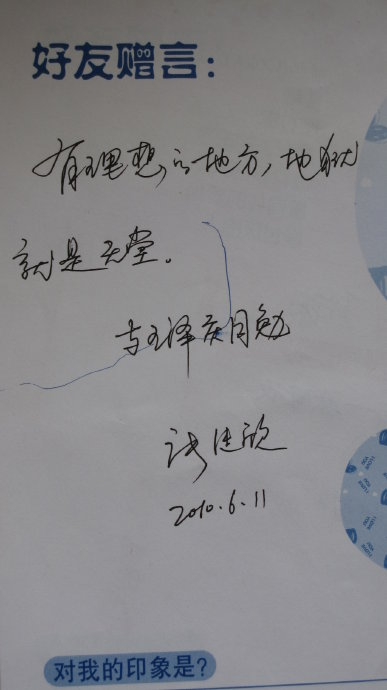 好友赠言:
有理想的地方,地狱
就是天堂。
与王泽庆同勉
2010.6.11
对我的印象是?